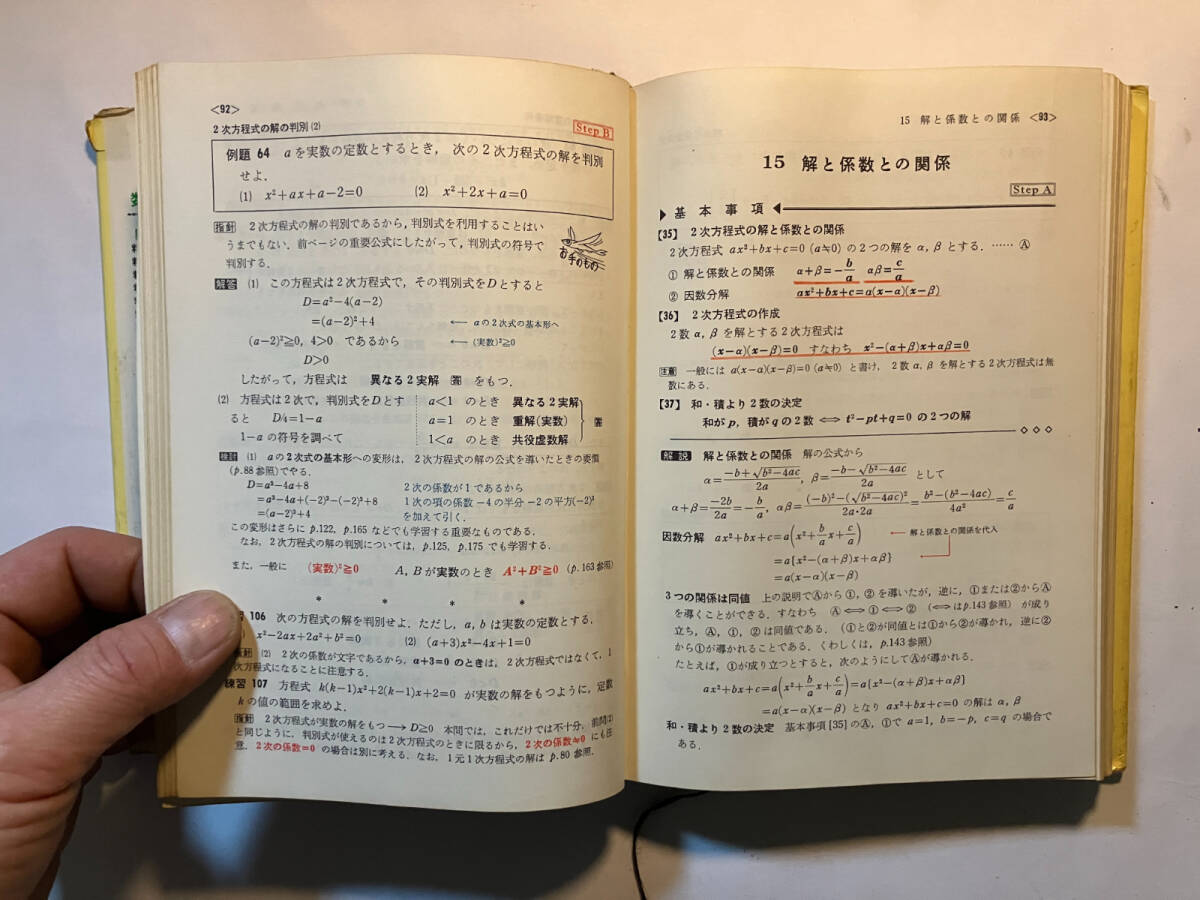 <92>
2次方程式の解の判別(2)
Step B
例題 64 aを実数の定数とするとき, 次の2次方程式の解を判別
せよ.
(1) x²+ax+a−2=0 (2) x²+2x+a=0
指針 2次方程式の解の判別であるから, 判別式を利用することはい
うまでもない. 前ページの重要公式にしたがって, 判別式の符号で
判別する.
お手のもの
解答 (1) この方程式は2次方程式で, その判別式をDとすると
D=a²−4(a−2)
=(a−2)²+4 ← aの2次式の基本形へ
(a−2)²≧0, 4>0 であるから ← (実数)²≧0
D>0
したがって, 方程式は 異なる2実解 答 をもつ.
(2) 方程式は2次で, 判別式をDとす
ると D/4=1−a
1−a の符号を調べて
a<1 のとき 異なる2実解
a=1 のとき 重解(実数) 答
1<a のとき 共役虚数解
検討 (1) aの2次式の基本形への変形は, 2次方程式の解の公式を導いたときの要領
(p.88参照)でやる.
D=a²−4a+8 2次の係数が1であるから
=a²−4a+(−2)²−(−2)²+8 1次の項の係数−4の半分−2の平方(−2)²
=(a−2)²+4 を加えて引く.
この変形はさらに p.122, p.165 などでも学習する重要なものである.
なお, 2次方程式の解の判別については, p.125, p.175 でも学習する.
また, 一般に (実数)²≧0 A, B が実数のとき A²+B²≧0 (p.163参照)
* * * *
106 次の方程式の解を判別せよ. ただし, a, b は実数の定数とする.
x²−2ax+2a²+b²=0 (2) (a+3)x²−4x+1=0
(2) 2次の係数が文字であるから, a+3=0 のときは, 2次方程式ではなくて, 1
次方程式になることに注意する.
練習 107 方程式 k(k−1)x²+2(k−1)x+2=0 が実数の解をもつように, 定数
k の値の範囲を求めよ.
指針 2次方程式が実数の解をもつ → D≧0 本問では, これだけでは不十分. 前問(2)
と同じように, 判別式が使えるのは2次方程式のときに限るから, 2次の係数≠0 にも注
意. 2次の係数=0 の場合は別に考える. なお, 1元1次方程式の解は p.80 参照.
15 解と係数との関係 <93>
15 解と係数との関係
Step A
基本事項
【35】 2次方程式の解と係数との関係
2次方程式 ax²+bx+c=0 (a≠0) の2つの解を α, β とする. …… Ⓐ
① 解と係数との関係 α+β=−b/a αβ=c/a
② 因数分解 ax²+bx+c=a(x−α)(x−β)
【36】 2次方程式の作成
2数 α, β を解とする2次方程式は
(x−α)(x−β)=0 すなわち x²−(α+β)x+αβ=0
注意 一般には a(x−α)(x−β)=0 (a≠0) と書け, 2数 α, β を解とする2次方程式は無
数にある.
【37】 和・積より2数の決定
和が p, 積が q の2数 ⟺ t²−pt+q=0 の2つの解
◇◇◇
解説 解と係数との関係 解の公式から
α=(−b+√(b²−4ac))/2a, β=(−b−√(b²−4ac))/2a として
α+β=−2b/2a=−b/a, αβ=((−b)²−(√(b²−4ac))²)/(2a·2a)=(b²−(b²−4ac))/4a²=c/a
因数分解 ax²+bx+c=a(x²+b/a x+c/a) ← 解と係数との関係を代入
=a{x²−(α+β)x+αβ}
=a(x−α)(x−β)
3つの関係は同値 上の説明でⒶから①, ②を導いたが, 逆に, ①または②からⒶ
を導くことができる. すなわち Ⓐ⟺①⟺② (⟺はp.143参照) が成り
立ち, Ⓐ, ①, ②は同値である. (①と②が同値とは①から②が導かれ, 逆に②
から①が導かれることである. くわしくは, p.143参照)
たとえば, ①が成り立つとすると, 次のようにしてⒶが導かれる.
ax²+bx+c=a(x²+b/a x+c/a)=a{x²−(α+β)x+αβ}
=a(x−α)(x−β) となり ax²+bx+c=0 の解は α, β
和・積より2数の決定 基本事項[35]のⒶ, ①で a=1, b=−p, c=q の場合で
ある.